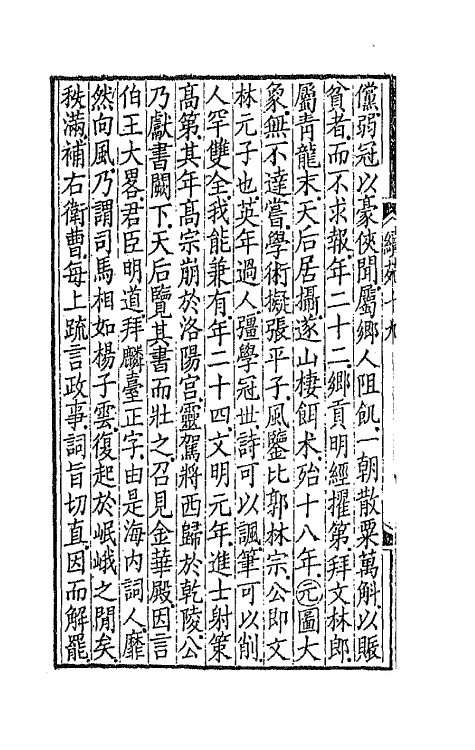 儻弱冠以豪俠聞屬鄉人阻飢一朝散粟萬斛以賑
貧者而不求報年二十二鄉貢明經擢第拜文林郎
屬青龍末天后居攝遂山棲餌术殆十八年元圖大
象無不達嘗學術擬張平子風鑒比郭林宗公即文
林元子也英年過人彊學冠世詩可以諷筆可以削
人罕雙全我能兼有年二十四文明元年進士射策
高第其年高宗崩於洛陽宮靈駕將西歸於乾陵公
乃獻書闕下天后覽其書而壯之召見金華殿因言
伯王大畧君臣明道拜麟臺正字由是海内詞人靡
然向風乃謂司馬相如楊子雲復起於岷峨之閒矣
秩滿補右衛曹每上疏言政事詞旨切直因而解罷